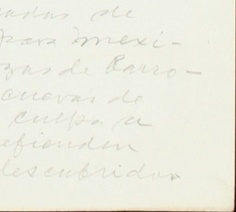 de
para mexi-
zas de Carro-
cuevas de
culpa u
efienden
descubridos